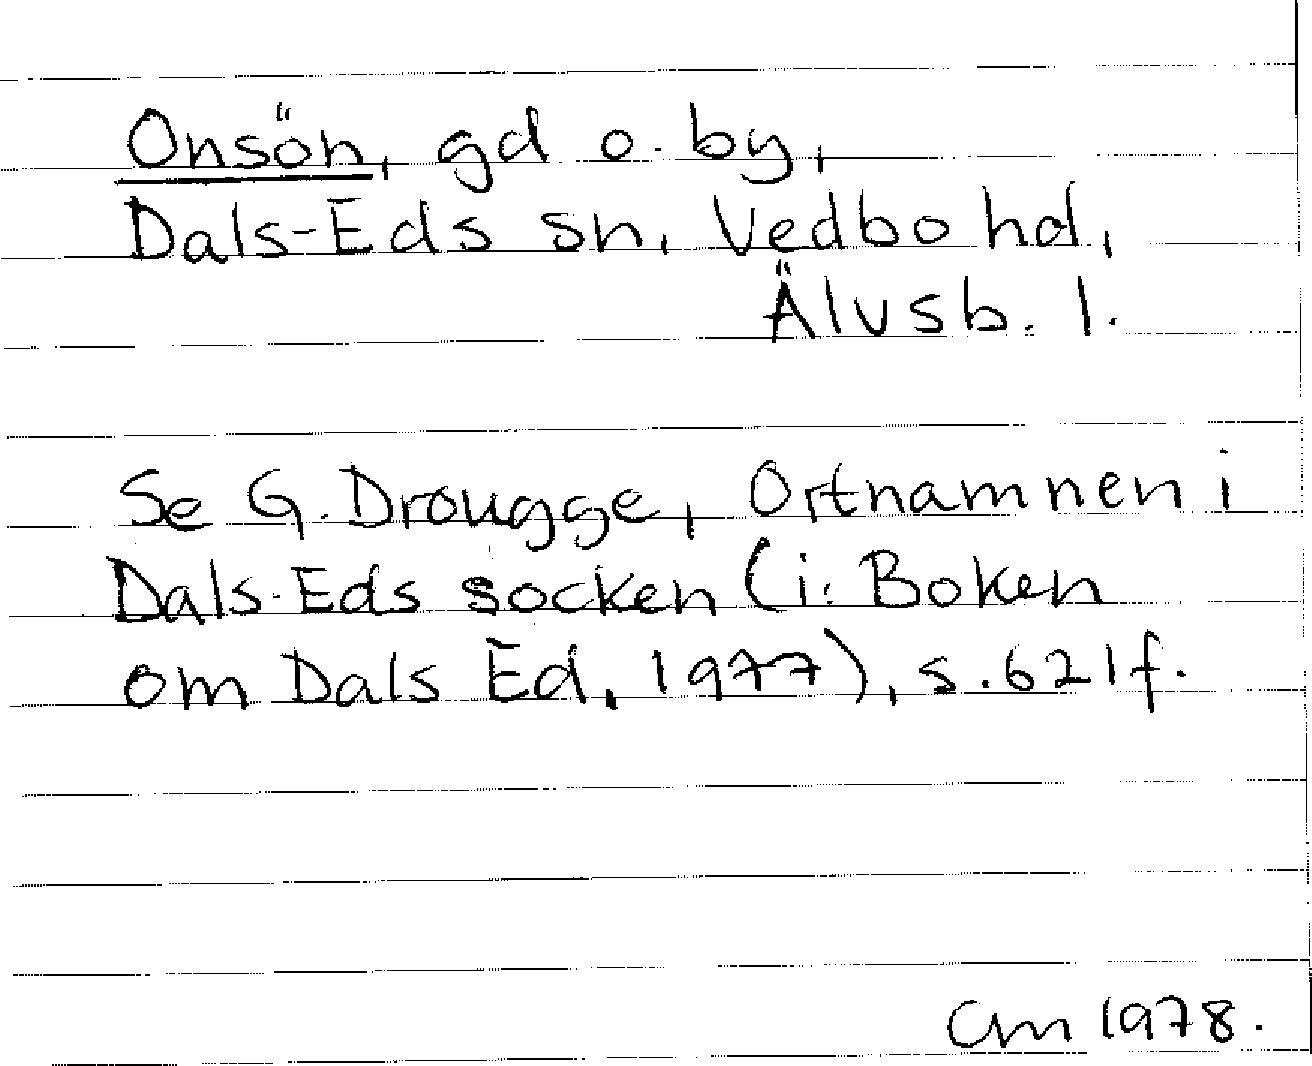 Onsön, gd o. by,
Dals-Eds sn, Vedbo hd,
Älvsb. l.
Se G. Drougge, Ortnamnen i
Dals-Eds socken (i: Boken
om Dals Ed, 1977), s. 621f.
Cm 1978.